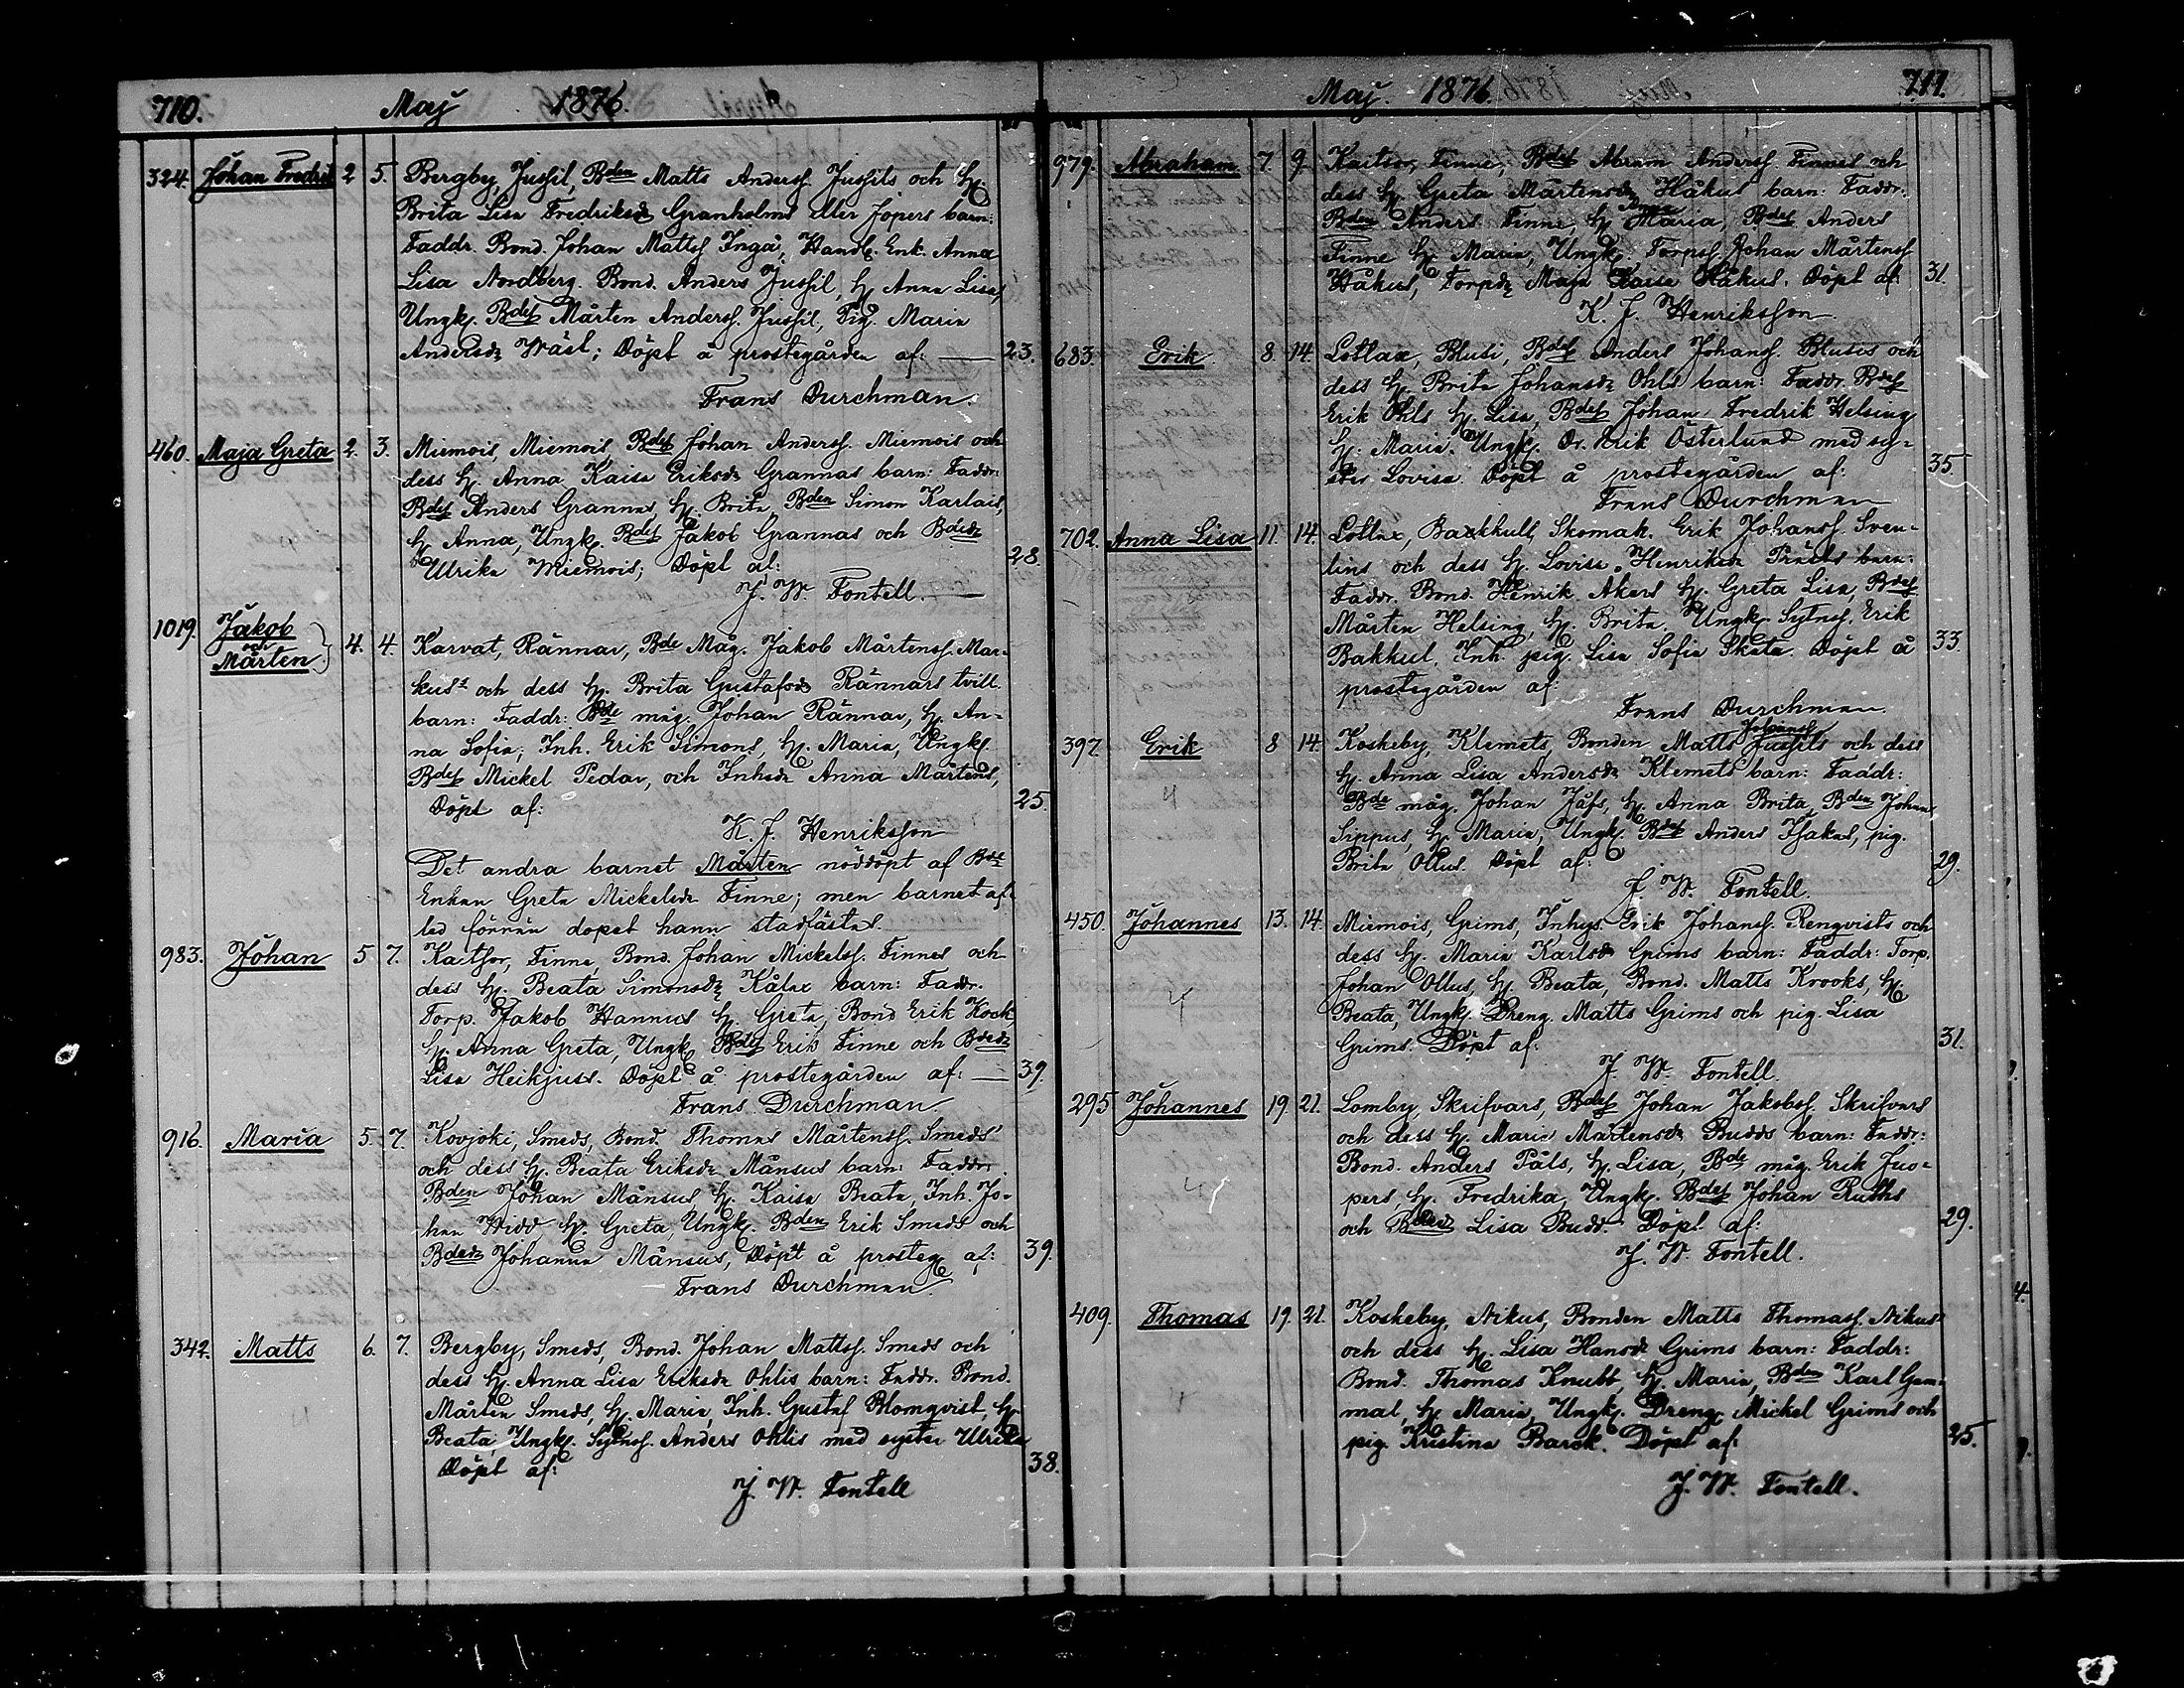 710. Maj 1876.
324. Johan Fredrik 2 5. Bergby, Jussil, Bden Matts Anderss. Jussils och H.
Brita Lisa Fredriksdr Granholms eller Jopers barn:
Faddr. Bond. Johan Mattss Ingå, Handl. Enk. Anna
Lisa Nordberg. Bond. Anders Jussil, H. Anna Lisa,
Ungk. Bdes Mårten Anderss. Jussil, Pig. Maria
Andersdr Wäst; Döpt å prostegården af: — 23.
Frans Durchman.
460. Maja Greta 2. 3. Miemois, Miemois, Bdes Johan Anderss. Miemois och
dess H. Anna Kaisa Eriksdr Grannas barn: Faddr.
Bdes Anders Grannas, H. Brita, Bden Simon Karlais,
H. Anna, Ungk. Bdes Jakob Grannas och Bdedr
Ulrika Miemois; Döpt af: 28.
J. W. Fontell. —
1019. Jakob
och
Mårten } 4. 4. Karvat, Rännar, Bde Måg. Jakob Mårtenss. Mar-
kus och dess H. Brita Gustafsdr Rännars tvill.
barn: Faddr: Bde måg. Johan Rännar, H. An-
na Sofia; Inh. Erik Simons, H. Maria, Ungk.
Bdes Mickel Pedar, och Inhsdr Anna Mårtens,
Döpt af: 25.
K. J. Henriksson
Det andra barnet Mårten nöddöpt af Bde
Enkan Greta Mickelsdr Finne; men barnet af-
led förrän dopet hann stadfästas.
983. Johan 5 7. Kaitsor, Finne, Bond. Johan Mickelss. Finnes och
dess H. Beata Simonsdr Kålax barn: Faddr.
Torp. Jakob Hannus H. Greta, Bond Erik Kock,
H. Anna Greta, Ungk. Bdes Erik Finne och Bdedr
Lisa Heikjus. Döpt å prostegården af: — 39.
Frans Durchman.
916. Maria 5. 7. Kovjoki, Smeds, Bond. Thomas Mårtenss. Smeds
och dess H. Beata Eriksdr Månsus barn: Faddr.
Bden Johan Månsus H. Kaisa Beata, Inh. Jo-
han Widd H. Greta, Ungk. Bden Erik Smeds och
Bdedr Johanna Månsus, Döpt å prosteg. af: 39.
Frans Durchman.
342. Matts 6. 7. Bergby, Smeds, Bond. Johan Mattss. Smeds och
dess H. Anna Lisa Eriksdr Ohlis barn: Faddr. Bond.
Mårten Smeds, H. Maria, Inh. Gustaf Blomqvist, H.
Beata, Ungk. Sytns. Anders Ohlis med syster Ulrika
Döpt af: 38.
J. W. Fontell
Maj. 1876. 711.
979. Abraham 7 9. Kaitsor, Finne, Bdes Abram Anderss. Finnes och
dess H. Greta Mårtensdr Håkus barn: Faddr.
Bden Anders Finne, H. Maria, Bdes Anders
Finne H. Maria, Ungk. Torps. Johan Mårtenss
Håkus, Torpdr Maja Kaisa Håkus. Döpt af: 31.
K. J. Henriksson
683. Erik 8. 14. Lotlax, Blusi, Bdes Anders Johanss. Blusis och
dess H. Brita Johansdr Ohls barn: Faddr. Bdes
Erik Ohls H. Lisa, Bdes Johan Fredrik Helsing
H. Maria. Ungk. Dr. Erik Österlund med sy-
ster Lovisa Döpt å prostegården af: 35.
Frans Durchman
702. Anna Lisa 11. 14. Lotlax, Backhull, Skomak. Erik Johanss. Sven-
lins och dess H. Lovisa Henriksdr Präcks barn:
Faddr. Bond. Henrik Akers H. Greta Lisa, Bdes
Mårten Helsing, H. Brita. Ungk. Sytns. Erik
Bakkul. Inh. pig. Lisa Sofia Skata. Döpt å 33.
prostegården af:
Frans Durchman.
397. Erik 8 14. Koskeby, Klemets, Bonden Matts Johanss Jussils och dess
H. Anna Lisa Andersdr Klemets barn: Faddr:
Bde måg. Johan Jåfs, H. Anna Brita, Bden Johan
Sippus, H. Maria, Ungk. Bdes Anders Isakas, pig.
Brita Ollus. Döpt af: 29.
J. W. Fontell.
450. Johannes 13. 14. Miemois, Grims, Inhys. Erik Johanss. Renqvists och
dess H. Maria Karlsdr Grims barn: Faddr: Torp.
Johan Ollus, H. Beata, Bond. Matts Krooks, H.
Beata, Ungk. Dreng. Matts Grims och pig. Lisa
Grims. Döpt af: 31.
J. W. Fontell.
295 Johannes 19. 21. Lomby, Skrifvars, Bdes Johan Jakobss. Skrifvars
och dess H. Maria Mårtensdr Budds barn: Faddr:
Bond. Anders Påls, H. Lisa, Bde måg. Erik Juo-
pers, H. Fredrika, Ungk. Bdes Johan Ruths
och Bdedr Lisa Budd. Döpt af: 29.
J. W. Fontell.
409. Thomas 19. 21. Koskeby, Nikus, Bonden Matts Thomass. Nikus
och dess H. Lisa Hansdr Grims barn: Faddr:
Bond. Thomas Knubb, H. Maria, Bden Karl Gam-
mal, H. Maria, Ungk. Dreng. Mickel Grims och
pig. Kristina Barck. Döpt af: 25.
J. W. Fontell.